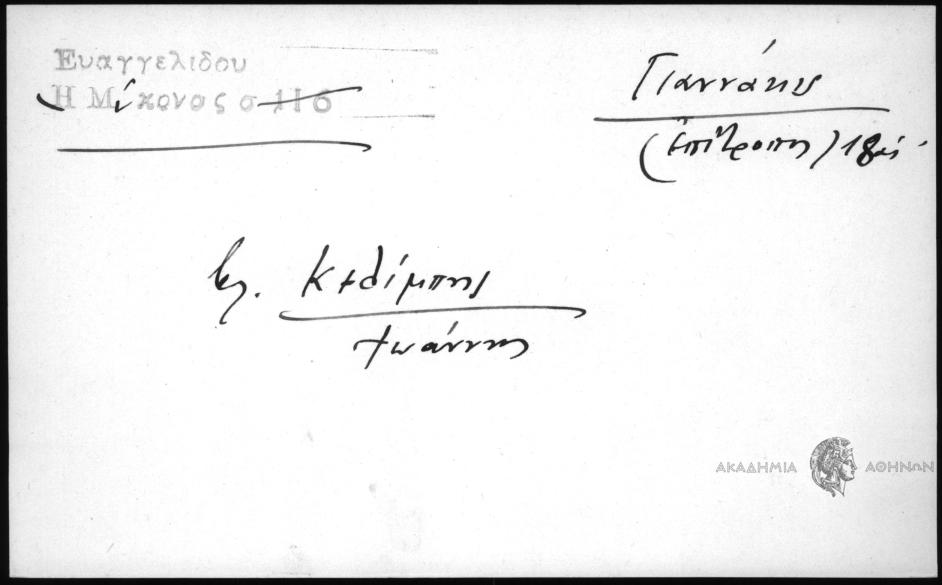 Ευαγγελίδου
Η Μύκονος σ 116
Γιαννάκης
(ἐπίτροπος)
βλ. Κελίμπης
Ἰωάννης
ΑΚΑΔΗΜΙΑ ΑΘΗΝΩΝ